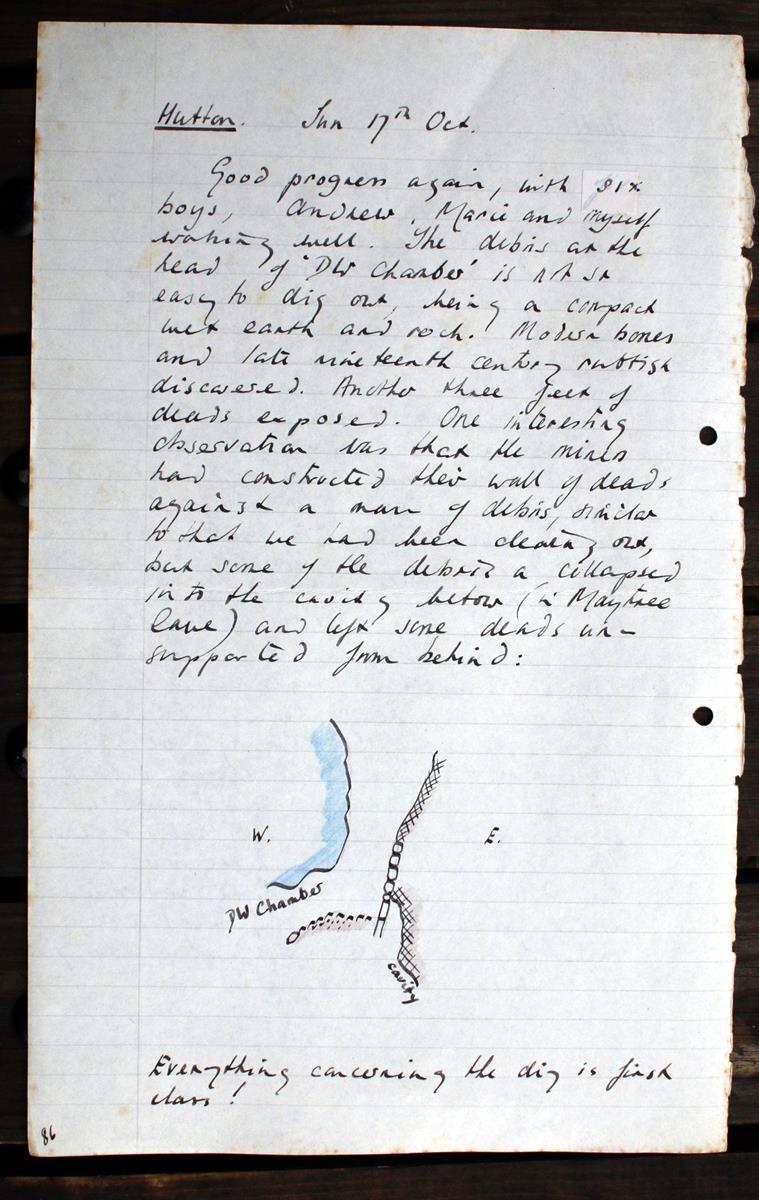 Hutton. Sun 17th Oct.
Good progress again, with six
boys, Andrew, Marie and myself
working well. The debris at the
head of 'DW Chamber' is not so
easy to dig out, being a compact
wet earth and rock. Modern bones
and late nineteenth century rubbish
discovered. Another three feet of
deads exposed. One interesting
observation was that the miners
had constructed their wall of deads
against a mass of debris, similar
to that we had been clearing out,
but some of the debris a collapsed
into the cavity below (in Maytree
Cave) and left some deads un-
supported from behind:
W.
E.
DW Chamber
cavity
Everything concerning the dig is first
class!
86